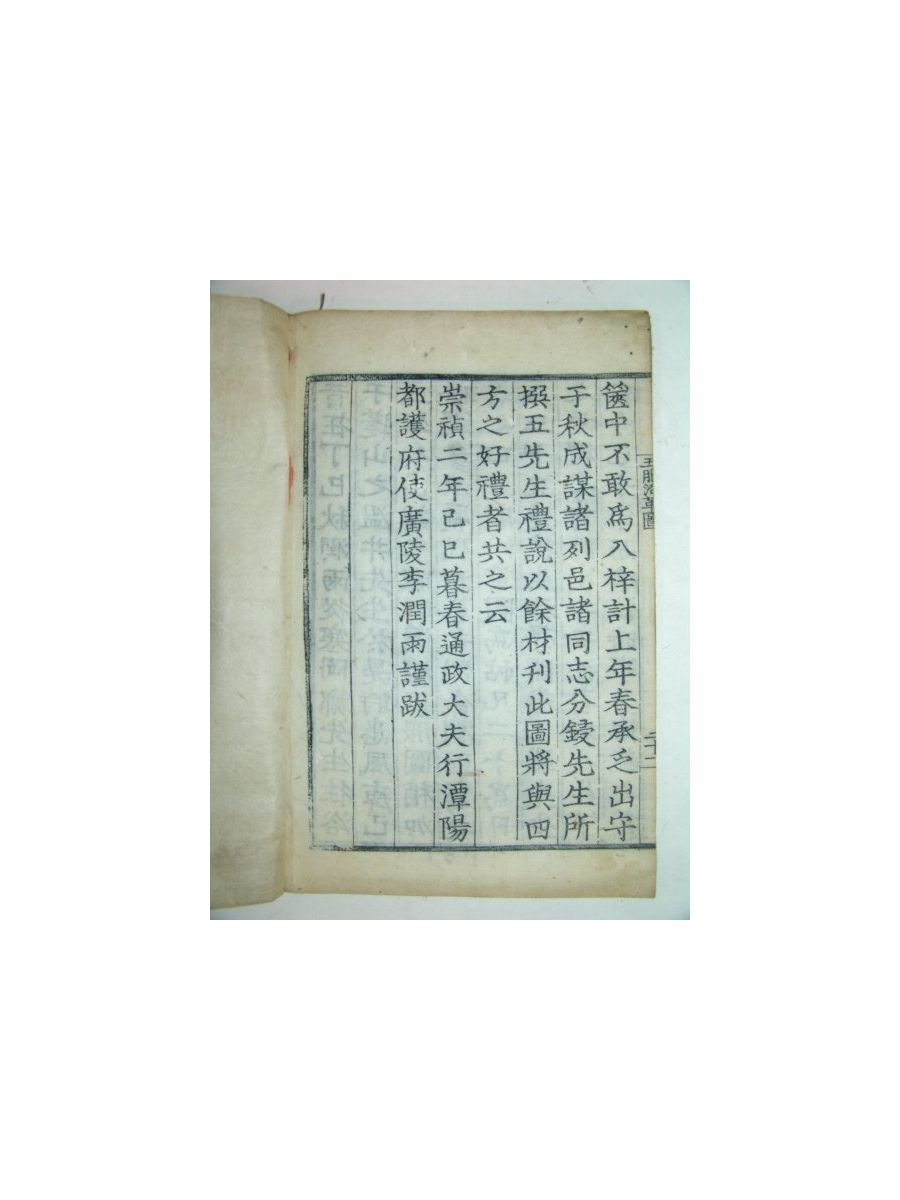 篋中不敢爲入梓計上年春承乏出守
于秋成謀諸列邑諸同志分鋟先生所
撰五先生禮說以餘材刊此圖將與四
方之好禮者共之云
崇禎二年己巳暮春通政大夫行潭陽
都護府使廣陵李潤雨謹跋
五服沿革圖
二十二